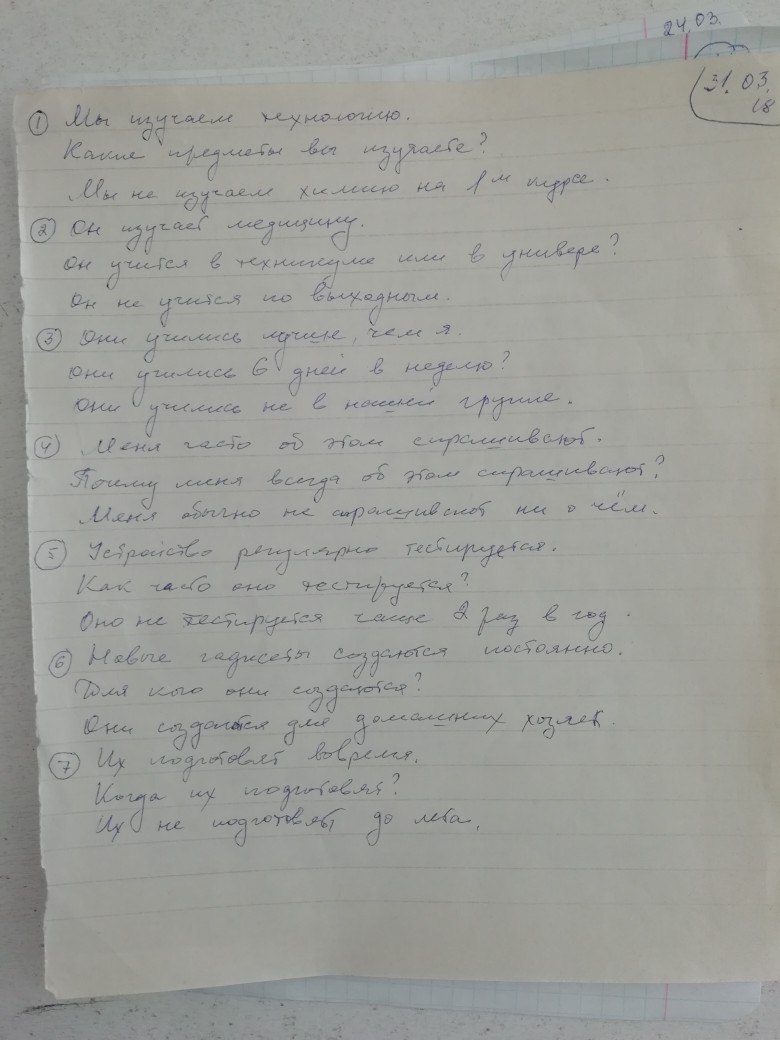 24.03.
31.03.
18
① Мы изучаем технологию.
Какие предметы вы изучаете?
Мы не изучаем химию на 1м курсе.
② Он изучает медицину.
Он учится в техникуме или в универе?
Он не учится по выходным.
③ Они учились лучше, чем я.
Они учились 6 дней в неделю?
Они учились не в нашей группе.
④ Меня часто об этом спрашивают.
Почему меня всегда об этом спрашивают?
Меня обычно не спрашивают ни о чём.
⑤ Устройство регулярно тестируется.
Как часто оно тестируется?
Оно не тестируется чаще 2 раз в год.
⑥ Новые гаджеты создаются постоянно.
Для кого они создаются?
Они создаются для домашних хозяек.
⑦ Их подготовят вовремя.
Когда их подготовят?
Их не подготовят до лета.